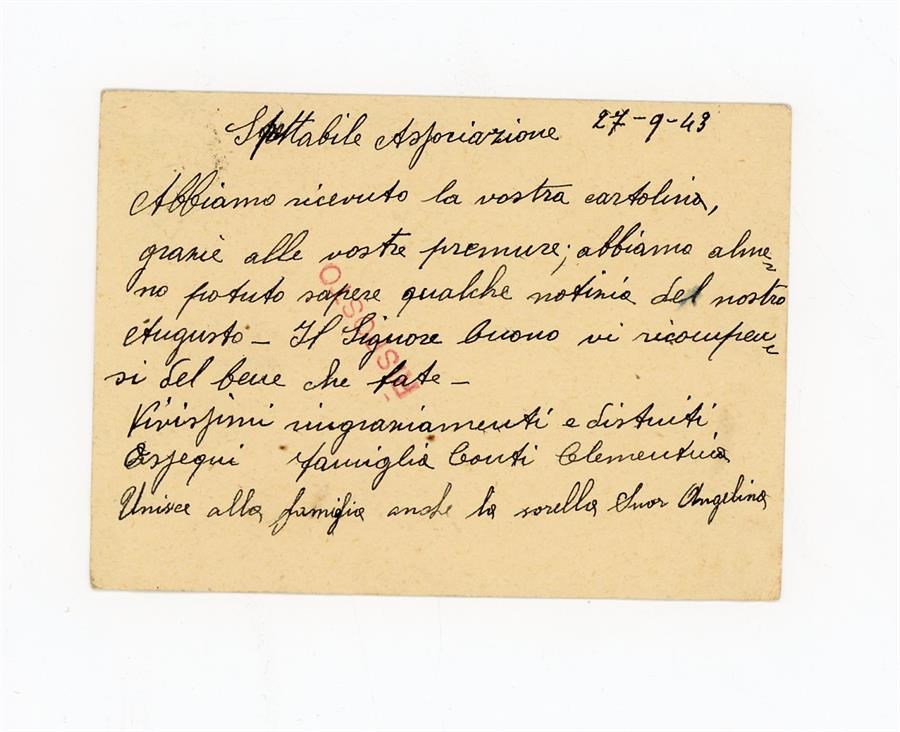 Spettabile Associazione 27-9-43
Abbiamo ricevuto la vostra cartolina,
grazie alle vostre premure; abbiamo alme=
no potuto sapere qualche notizia del nostro
Augusto - Il Signore buono vi ricompen=
si del bene che fate -
RISPOSTO
Vivissimi ringraziamenti e distinti
Ossequi famiglia Conti Clementina
Unisce alla famiglia anche la sorella Suor Angelina